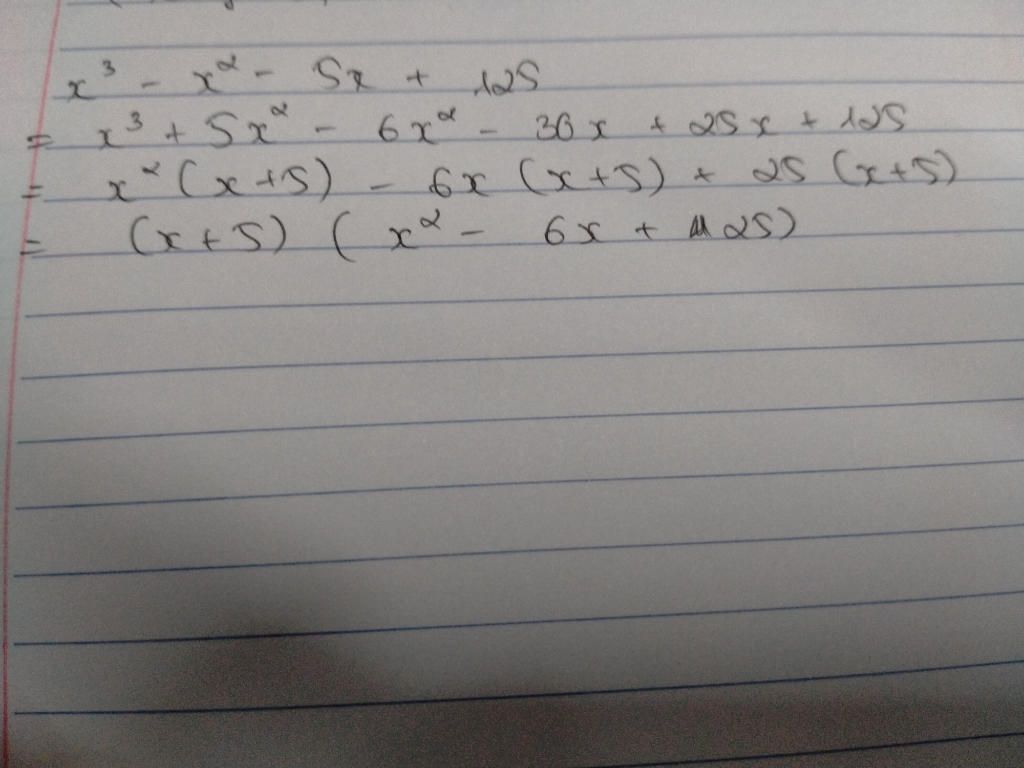 x³ - x² - 5x + 125
= x³ + 5x² - 6x² - 30x + 25x + 125
= x² (x+5) - 6x (x+5) + 25 (x+5)
= (x+5) (x² - 6x + 25)